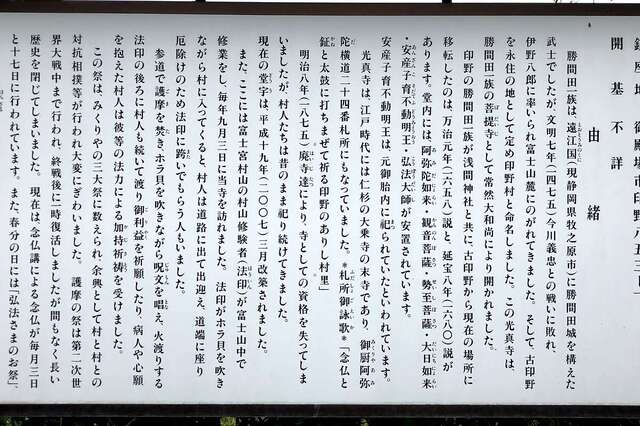 鎮座地 御殿場市印野八五三
開基不詳
由緒
勝間田一族は、遠江国(現静岡県牧之原市)に勝間田城を構えた
武士でしたが、文明七年(一四七五)今川義忠との戦いに敗れ、
伊野八郎に率いられ富士山麓にのがれてきました。そして、古印野
を永住の地として定め印野村と命名しました。この光真寺は、
勝間田一族の菩提寺として常然大和尚により開かれました。
印野の勝間田一族が浅間神社と共に、古印野から現在の場所に
移転したのは、万治元年(一六五八)説と、延宝八年(一六八〇)説が
あります。堂内には、阿弥陀如来・観音菩薩・勢至菩薩・大日如来
・安産子育不動明王・弘法大師が安置されています。
安産子育不動明王は、元御胎内に祀られていたといわれています。
光真寺は、江戸時代には仁杉の大乗寺の末寺であり、御厨阿弥
陀横道二十四番札所にもなっていました。*札所御詠歌*「念仏と
鉦と太鼓に打ちまぜて祈る印野のありし村里」
明治八年(一八七五)廃寺達により、寺としての資格を失ってしま
いましたが、村人たちは昔のまま祀り続けてきました。
現在の堂宇は、平成十九年(二〇〇七)三月改築されました。
また、ここには富士宮村山の村山修験者(法印)が富士山中で
修業をし、毎年九月三日に当寺を訪れました。法印がホラ貝を吹き
ながら村に入ってくると、村人は道路に出て出迎え、道端に座り
厄除けのため法印に跨いでもらう人もいました。
参道で護摩を焚き、ホラ貝を吹きながら呪文を唱え、火渡りする
法印の後ろに村人も続いて渡り御利益を祈願したり、病人や心願
を抱えた村人は彼等の法力による加持祈祷を受けました。
この祭は、みくりやの三大祭に数えられ、余興として村と村との
対抗相撲等が行われ大変にぎわいました。 護摩の祭は第二次世
界大戦中まで行われ、終戦後に一時復活しましたが間もなく長い
歴史を閉じてしまいました。現在は、念仏講による念仏が毎月三日
と十七日に行われています。また、春分の日には「弘法さまのお祭」、